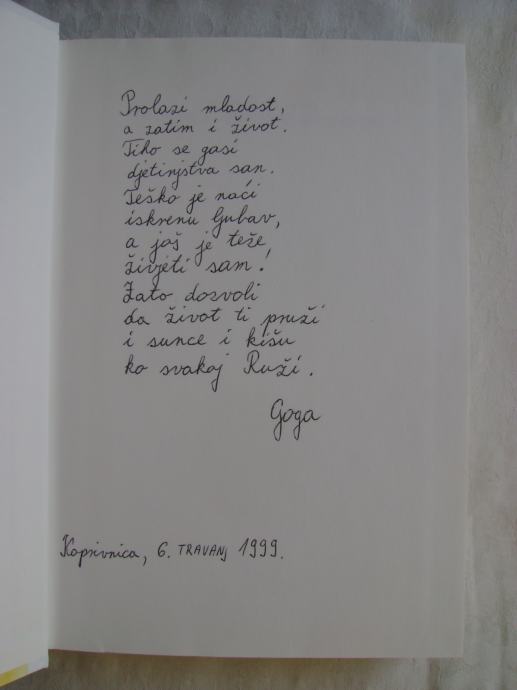 Prolazi mladost,
a zatim i život.
Tiho se gasi
djetinjstva san.
Teško je naći
iskrenu ljubav,
a još je teže
živjeti sam!
Zato dozvoli
da život ti pruži
i sunce i kišu
ko svakoj Ruži.
Goga
Koprivnica, 6. TRAVANJ 1999.